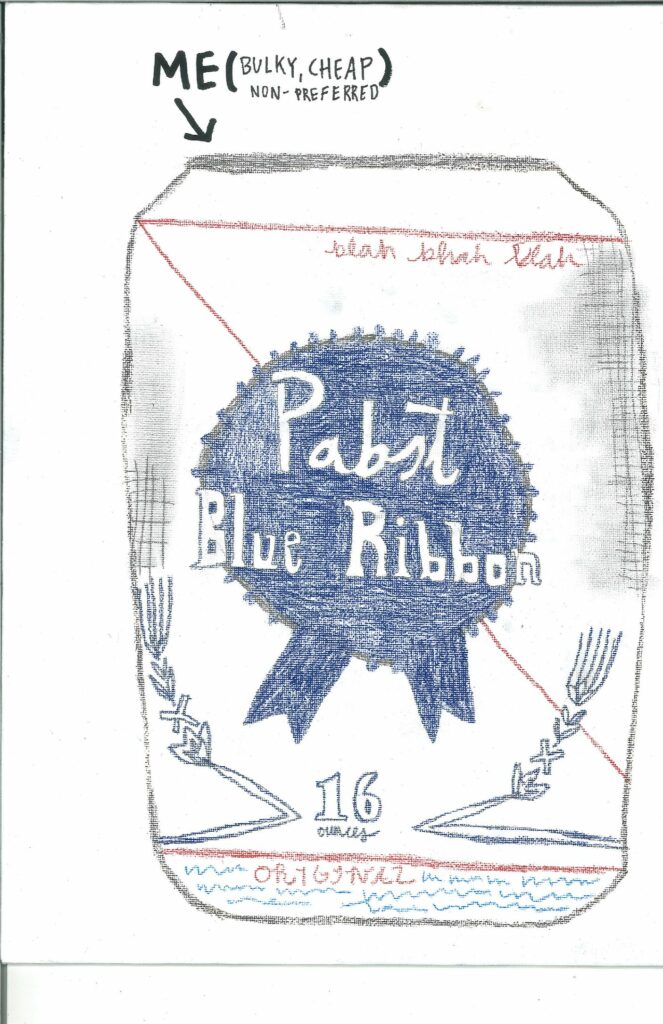 ME (BULKY, CHEAP)
NON-PREFERRED
blah blhah blah
Pabst
Blue Ribbon
16
ounces
ORIGINAL